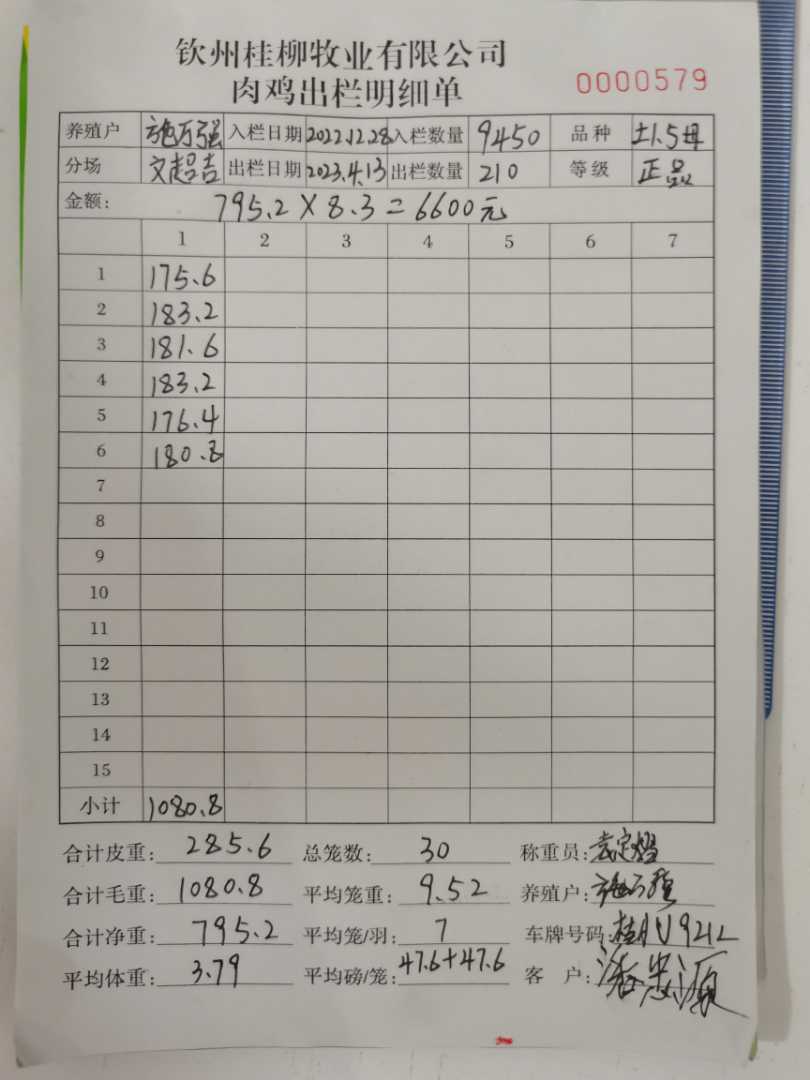 钦州桂柳牧业有限公司
肉鸡出栏明细单 0000579
养殖户 施万强 入栏日期 2022.12.28 入栏数量 9450 品种 土1.5母
分场 文超吉 出栏日期 2023.4.13 出栏数量 210 等级 正品
金额: 795.2 X 8.3 = 6600元
1 2 3 4 5 6 7
1 175.6
2 183.2
3 181.6
4 183.2
5 176.4
6 180.8
7
8
9
10
11
12
13
14
15
小计 1080.8
合计皮重: 285.6 总笼数: 30 称重员:
合计毛重: 1080.8 平均笼重: 9.52 养殖户: 施万强
合计净重: 795.2 平均笼/羽: 7 车牌号码:
平均体重: 3.79 平均磅/笼: 47.6+47.6 客 户: